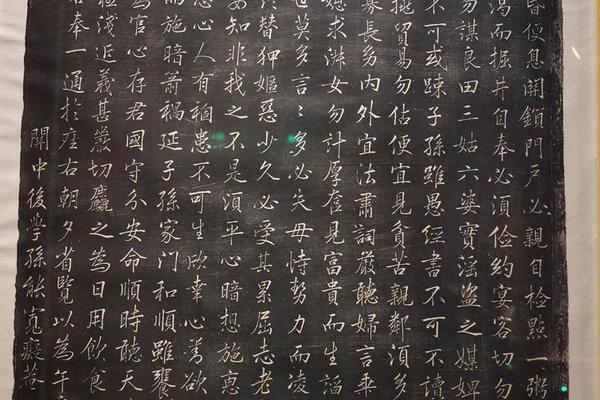 昏便息關鎖門戶必親自檢點一粥
渴而掘井自奉必須儉約宴客切勿
勿謀良田三姑六婆實淫盜之媒婢
不可或踈子孫雖愚經書不可不讀
挑貿易勿佔便宜見貧苦親鄰須多
寡長幼內外宜法肅詞嚴聽婦言乖
媳求淑女勿計厚奩見富貴而生諂
也莫多言〻多必失毋恃勢力而凌
終替狎昵惡少久必受其累屈志老
安知非我之不是須平心暗想施惠
忌心人有禍患不可生欣幸心善欲
而施暗箭禍延子孫家門和順雖饔
為官心存君國守分安命順時聽天
極淺近義甚嚴切麤之為日用飲食
奉一通於座右朝夕省覽以為
關中後學孫能寬癡菴